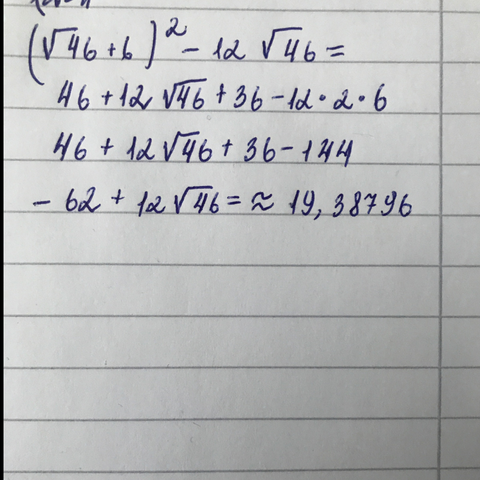 (√46 + 6)² - 12 √46 =
46 + 12 √46 + 36 - 12 • 2 • 6
46 + 12 √46 + 36 - 144
- 62 + 12 √46 = ≈ 19,38796